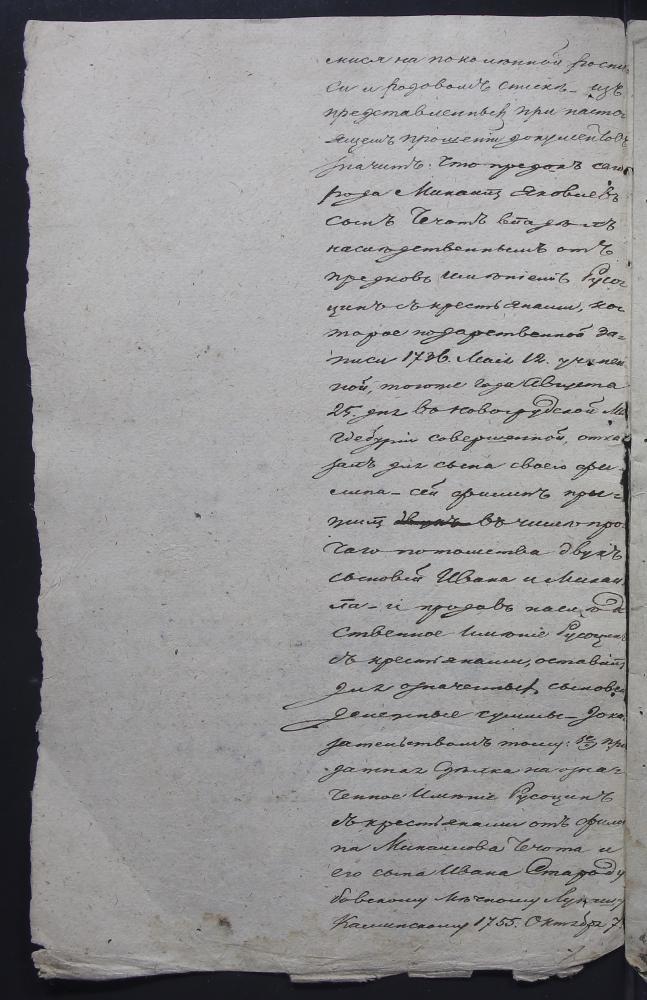 мися на поколенной роспи
си и родовомъ списке – изъ
представленныхъ при насто-
ящемъ прошеніи документовъ
значитъ: что предокъ сего
рода Михаилъ Яковлевъ
сынъ Чечотъ владелъ
наследственнымъ отъ
предковъ именіемъ Русо-
цинъ съ крестьянами, ко-
торое по дарственной за-
писи 1736. Маія 12. учинен
ной, тогоже года Августа
25. дня въ Новогрудской Ма
гдебуріи совершенной, отка
залъ для сына своего Фи-
липа – сей Филипъ при-
жилъ въ число про
чаго потомства двухъ
сыновей Ивана и Михаи-
ла – и продавъ наслед
ственное именіе Русоцинъ
съ крестьянами, оставилъ
для означенныхъ сыновей
денежные суммы – дока
зательствомъ тому: 1е) про
дажная сделка на озна-
ченное именіе Русоцинъ
съ крестьянами отъ Фили
па Михайлова Чечота и
его сына Ивана Староду
бовскому Мечному
Каминскому 1755. Октября 7.